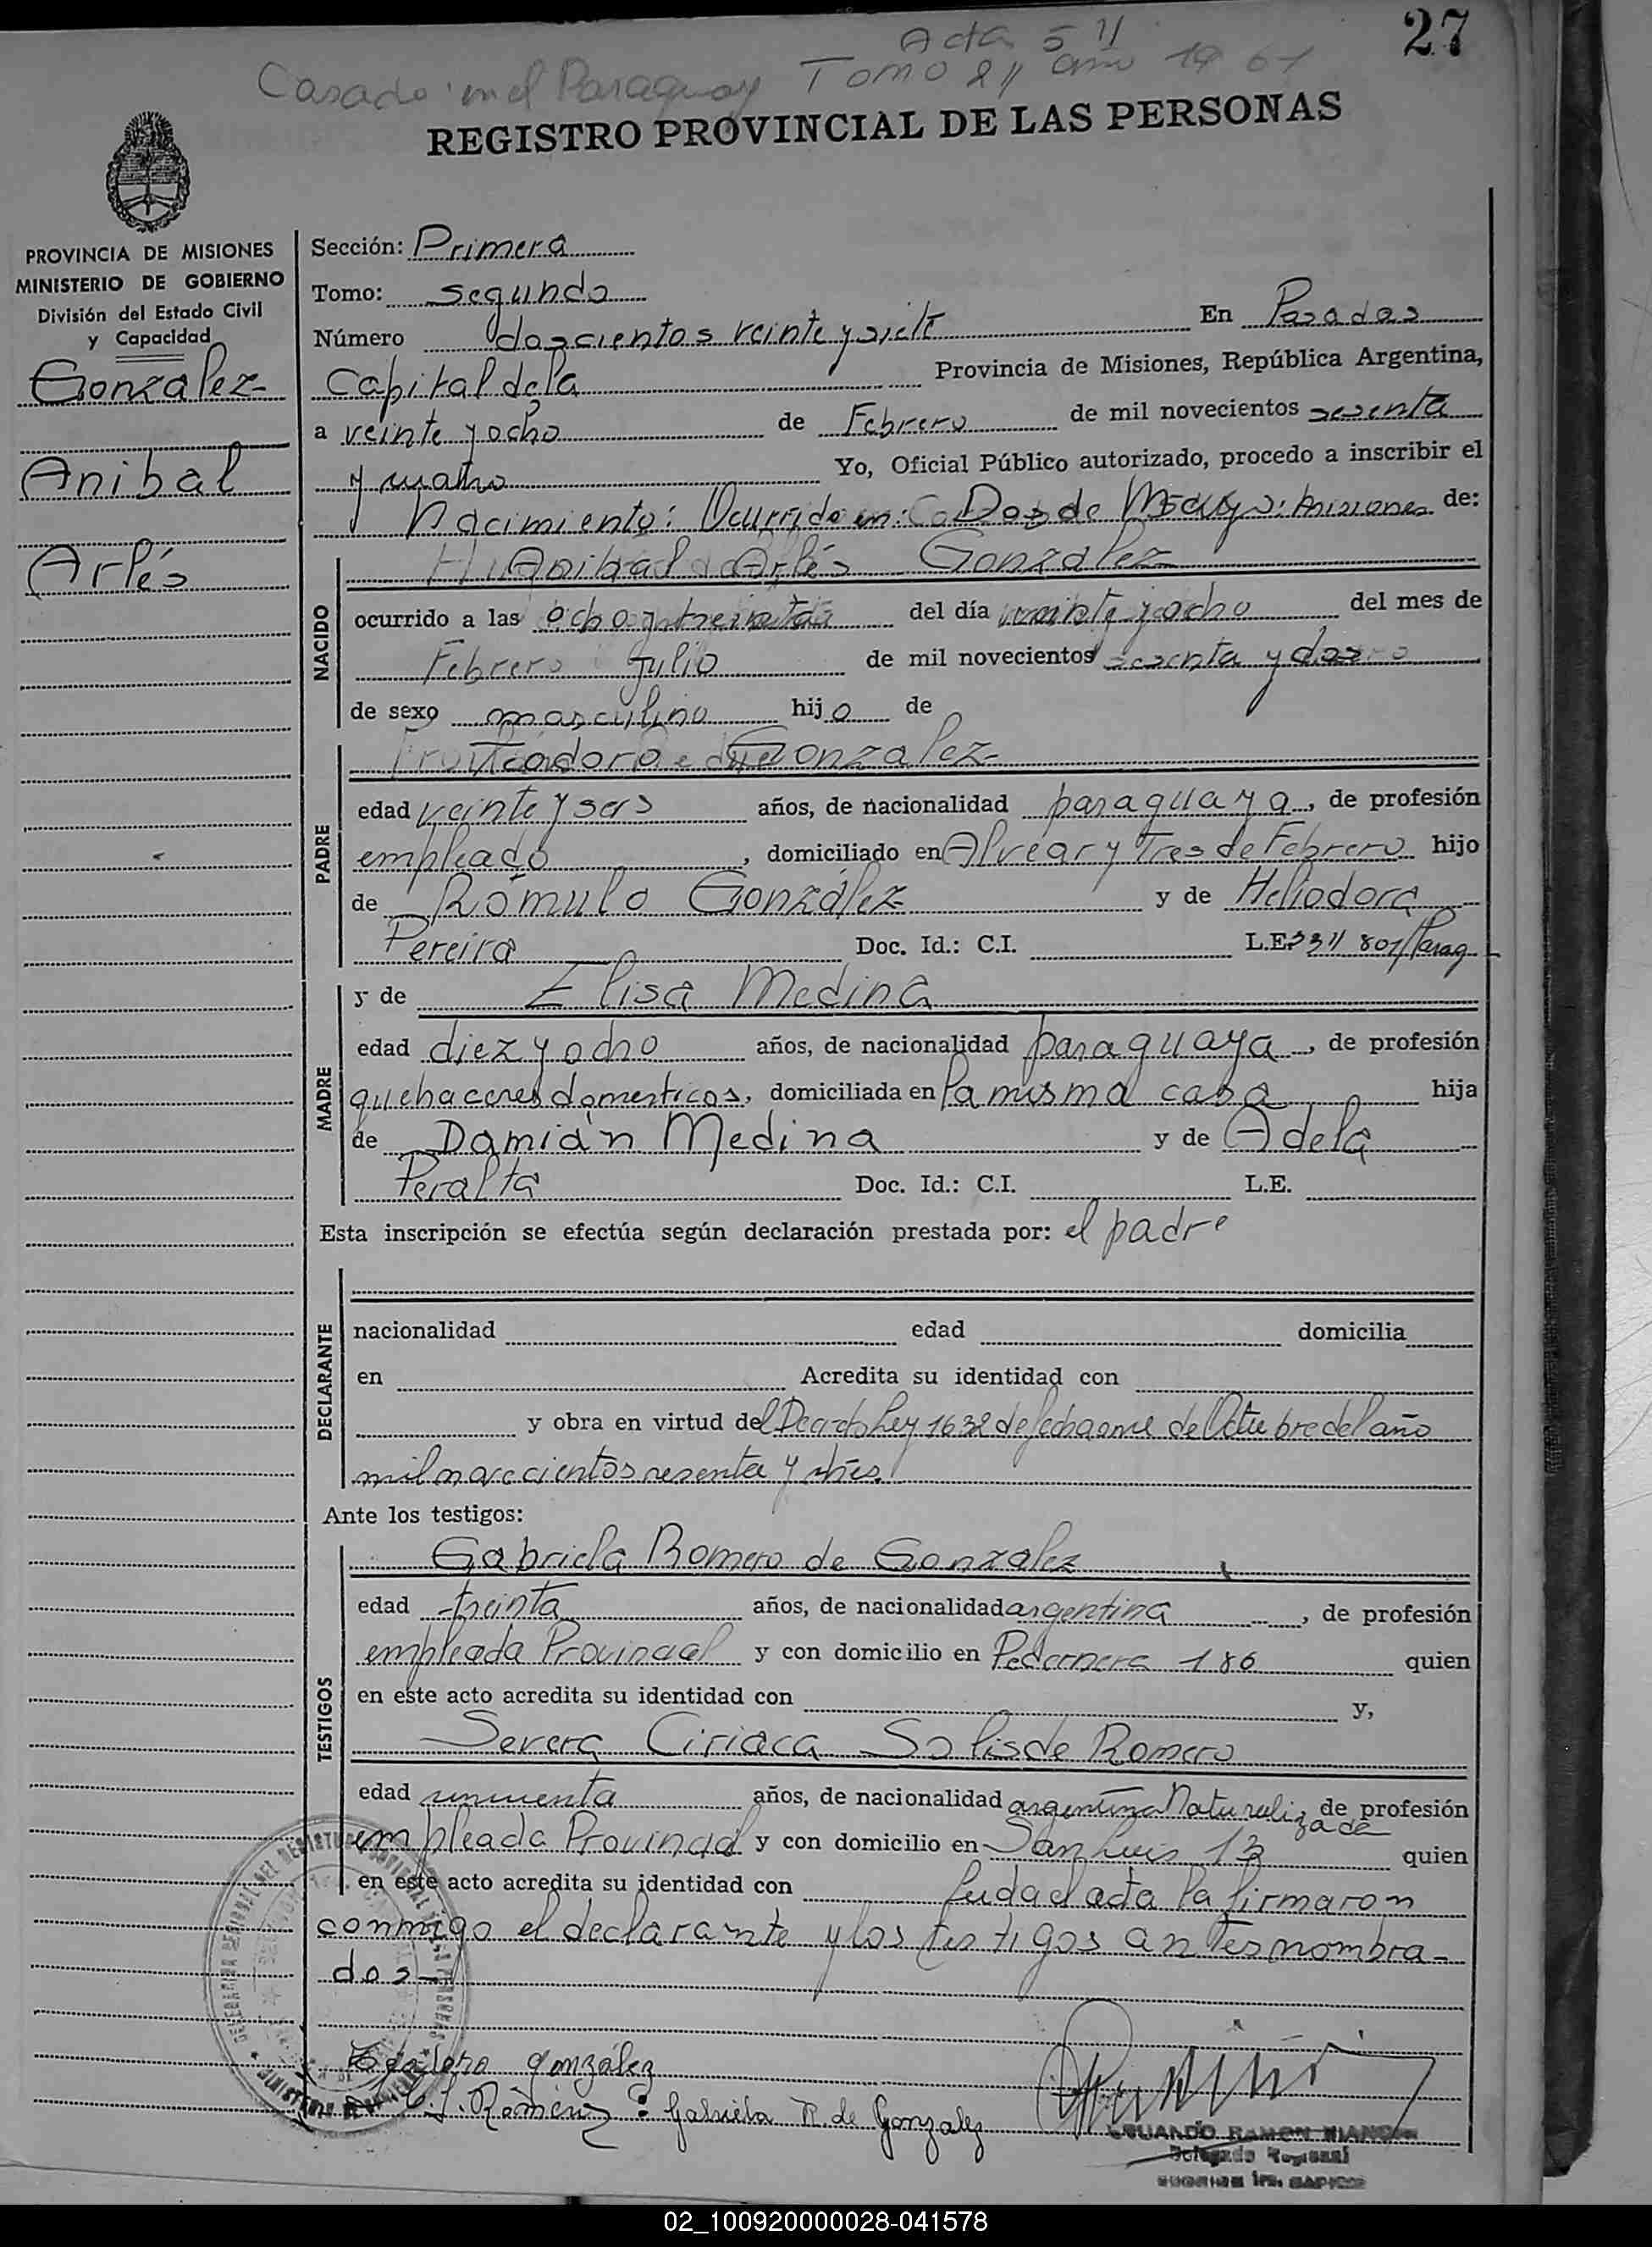 27
Acta 511
Casado en el Paraguay Tomo 2º año 1961
REGISTRO PROVINCIAL DE LAS PERSONAS
PROVINCIA DE MISIONES
MINISTERIO DE GOBIERNO
División del Estado Civil
y Capacidad
Gonzalez-
Anibal
Arlés
Sección: Primera
Tomo: segundo
Número doscientos veinte y siete En Posadas
Capital de la Provincia de Misiones, República Argentina,
a veinte y ocho de Febrero de mil novecientos sesenta
y cuatro Yo, Oficial Público autorizado, procedo a inscribir el
Nacimiento: Ocurrido en: Dos de Mayo: Misiones de:
NACIDO
Anibal Arlés Gonzalez
ocurrido a las ocho y treinta del día veinte y ocho del mes de
Julio de mil novecientos sesenta y dos
de sexo masculino hijo de
PADRE
Teodoro Gonzalez-
edad veinte y seis años, de nacionalidad paraguaya, de profesión
empleado, domiciliado en Alvear y Tres de Febrero hijo
de Rómulo González y de Heliodora
Pereira Doc. Id.: C.I. L.E. 331 801/Parag
MADRE
y de Elisa Medina
edad diez y ocho años, de nacionalidad paraguaya, de profesión
quehaceres domesticos, domiciliada en la misma casa hija
de Damián Medina y de Adela
Peralta Doc. Id.: C.I. L.E.
Esta inscripción se efectúa según declaración prestada por: el padre
DECLARANTE
nacionalidad edad domicilia
en Acredita su identidad con
y obra en virtud del Decreto Ley 1632 de fecha once de Octubre del año
mil novecientos sesenta y tres.
Ante los testigos:
TESTIGOS
Gabriela Romero de Gonzalez
edad treinta años, de nacionalidad argentina, de profesión
empleada Provincial y con domicilio en Pedernera 186 quien
en este acto acredita su identidad con y,
Severa Ciriaca Solis de Romero
edad cincuenta años, de nacionalidad argentina Naturalizada de profesión
empleada Provincial y con domicilio en San Luis 13 quien
en este acto acredita su identidad con Leida el acta la firmaron
conmigo el declarante y los testigos antes nombra-
dos-
Teodoro González
Gabriela R. de Gonzalez
RAMON
Delegado Regional
02_100920000028-041578